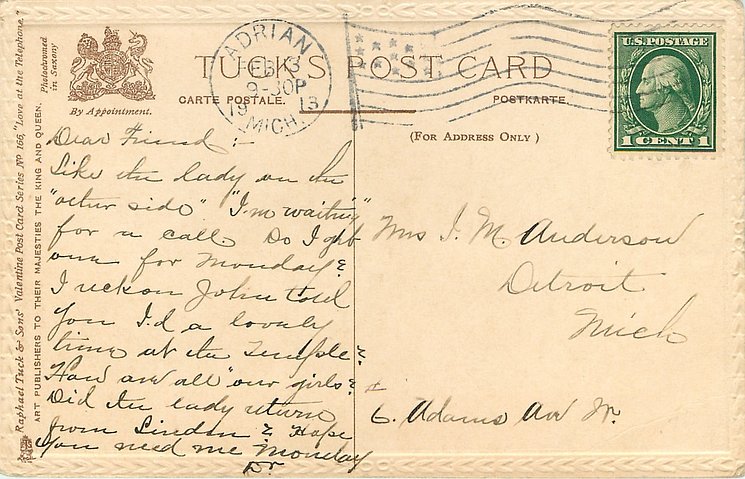 Raphael Tuck & Sons' Valentine Post Card Series No 166, "Love at the Telephone."
Photochromed in Saxony
ART PUBLISHERS TO THEIR MAJESTIES THE KING AND QUEEN.
By Appointment.
ADRIAN
FEB 13
9-30P
1913
MICH.
TUCK'S POST CARD
CARTE POSTALE.
POSTKARTE.
(FOR ADDRESS ONLY)
U.S. POSTAGE
1 CENT 1
Dear Friend:-
Like the lady on the
"other side" "I'm waiting"
for a call. Do I get
one for Monday?
I reckon John told
you I'd a lovely
time at the Temple.
How are all "our girls"?
Did the lady return
from Lindon? Hope
you need me Monday
Mrs J. M. Anderson
Detroit
Mich
6. Adams Ave W.